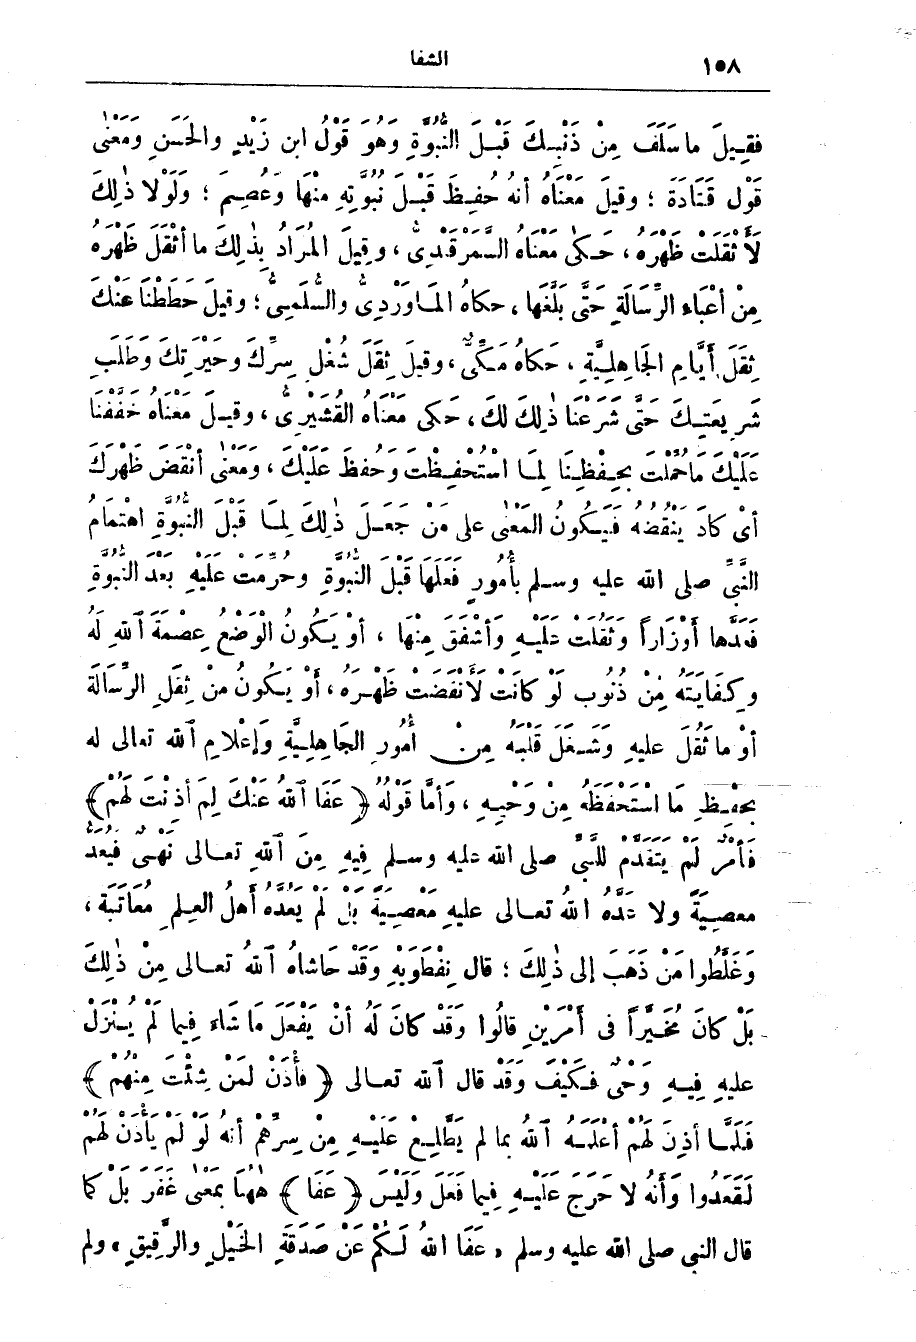 ١٥٨
الشفا
فَقِيلَ ما سَلَفَ مِنْ ذَنْبِكَ قَبْلَ النُّبُوَّةِ وَهُوَ قَوْلُ ابن زَيْدٍ والحَسَنِ وَمَعْنَى
قَوْلِ قَتَادَةَ ؛ وقيلَ مَعْنَاهُ أنهُ حُفِظَ قَبْلَ نُبُوَّتِهِ مِنْهَا وَعُصِمَ ؛ وَلَوْلا ذٰلِكَ
لَأَثْقَلَتْ ظَهْرَهُ ، حَكَى مَعْنَاهُ السَّمَرْقَنْدِىُّ ، وقِيلَ المُرَادُ بِذٰلِكَ ما أَثْقَلَ ظَهْرَهُ
مِنْ أَعْبَاءِ الرِّسَالَةِ حَتَّى بَلَّغَها ، حكاهُ المَاوَرْدِىُّ والسُّلَمِىُّ ؛ وقيلَ حَطَطْنَا عَنْكَ
ثِقَلَ أَيَّامِ الجَاهِلِيَّةِ ، حَكَاهُ مَكِّىٌّ ، وقيلَ ثِقَلَ شُغْلِ سِرِّكَ وحَيْرَتِكَ وَطَلَبِ
شَرِيعَتِكَ حَتَّى شَرَعْنَا ذٰلِكَ لَكَ ، حَكَى مَعْنَاهُ القُشَيْرِىُّ ، وقيلَ مَعْنَاهُ خَفَّفْنَا
عَلَيْكَ مَا حُمِّلْتَ بِحِفْظِنَا لِمَا اسْتُحْفِظْتَ وَحُفِظَ عَلَيْكَ ، وَمَعْنٰى أنْقَضَ ظَهْرَكَ
أىْ كادَ يَنْقُضُهُ فَيَكُونُ المَعْنٰى على مَنْ جَعَلَ ذٰلِكَ لِمَا قَبْلَ النُّبُوَّةِ اهْتِمَامُ
النَّبِيِّ صلى الله عليه وسلم بأُمُورٍ فَعَلَهَا قَبْلَ النُّبُوَّةِ وحُرِّمَتْ عَلَيْهِ بعد النُّبُوَّةِ
فَعَدَّها أَوْزَاراً وَثَقُلَتْ عَلَيْهِ وَأَشْفَقَ مِنْها ، أوْ يَكُونُ الْوَضْعُ عِصْمَةَ ٱللهِ لَهُ
وكِفَايَتَهُ مِنْ ذُنُوبٍ لَوْ كانَتْ لَأَنْقَضَتْ ظَهْرَهُ ، أَوْ يَكُونُ مِنْ ثِقَلِ الرِّسَالَةِ
أوْ ما ثَقُلَ عليهِ وَشَغَلَ قَلْبَهُ مِنْ أُمُورِ الجَاهِلِيَّةِ وَإعْلامِ ٱللهِ تعالى له
بحِفْظِ مَا اسْتَحْفَظَهُ مِنْ وَحْيِهِ ، وَأمَّا قَوْلُهُ ﴿ عَفَا ٱللهُ عَنْكَ لِمَ أَذِنْتَ لَهُمْ ﴾
فَأَمْرٌ لَمْ يَتَقَدَّمْ للنَّبِيِّ صلى الله عليه وسلم فِيهِ مِنَ ٱللهِ تعالى نَهْىٌ فَيُعَدُّ
مَعْصِيَةً ولا عَدَّهُ اللهُ تعالى عليهِ مَعْصِيَةً بَلْ لَمْ يَعُدَّهُ أَهْلُ العِلْمِ مُعَاتَبَةً ،
وَغَلَّطُوا مَنْ ذَهَبَ إلى ذٰلِكَ ؛ قال نِفْطَوَيْهِ وَقَدْ حَاشَاهُ ٱللهُ تعالى مِنْ ذٰلِكَ
بَلْ كَانَ مُخَيَّراً فى أَمْرَيْنِ قالُوا وَقَدْ كانَ لَهُ أنْ يَفْعَلَ مَا شَاءَ فِيما لَمْ يُنْزَلْ
عليهِ فِيهِ وَحْىٌ فَكَيْفَ وَقَدْ قال ٱللهُ تعالى ﴿ فَأْذَنْ لِمَنْ شِئْتَ مِنْهُمْ ﴾
فَلَمَّا أذِنَ لَهُمْ أَعْلَمَهُ ٱللهُ بما لم يَطَّلِعْ عَلَيْهِ مِنْ سِرِّهِمْ أنهُ لَوْ لَمْ يَأْذَنْ لَهُمْ
لَقَعَدُوا وَأنهُ لا حَرَجَ عَلَيْهِ فِيما فَعَلَ وَلَيْسَ ﴿ عَفَا ﴾ هٰهُنَا بمعْنٰى غَفَرَ بَلْ كما
قال النبى صلى الله عليه وسلم « عَفَا اللهُ لَكُمْ عَنْ صَدَقَةِ الخَيْلِ والرَّقِيقِ » ولم